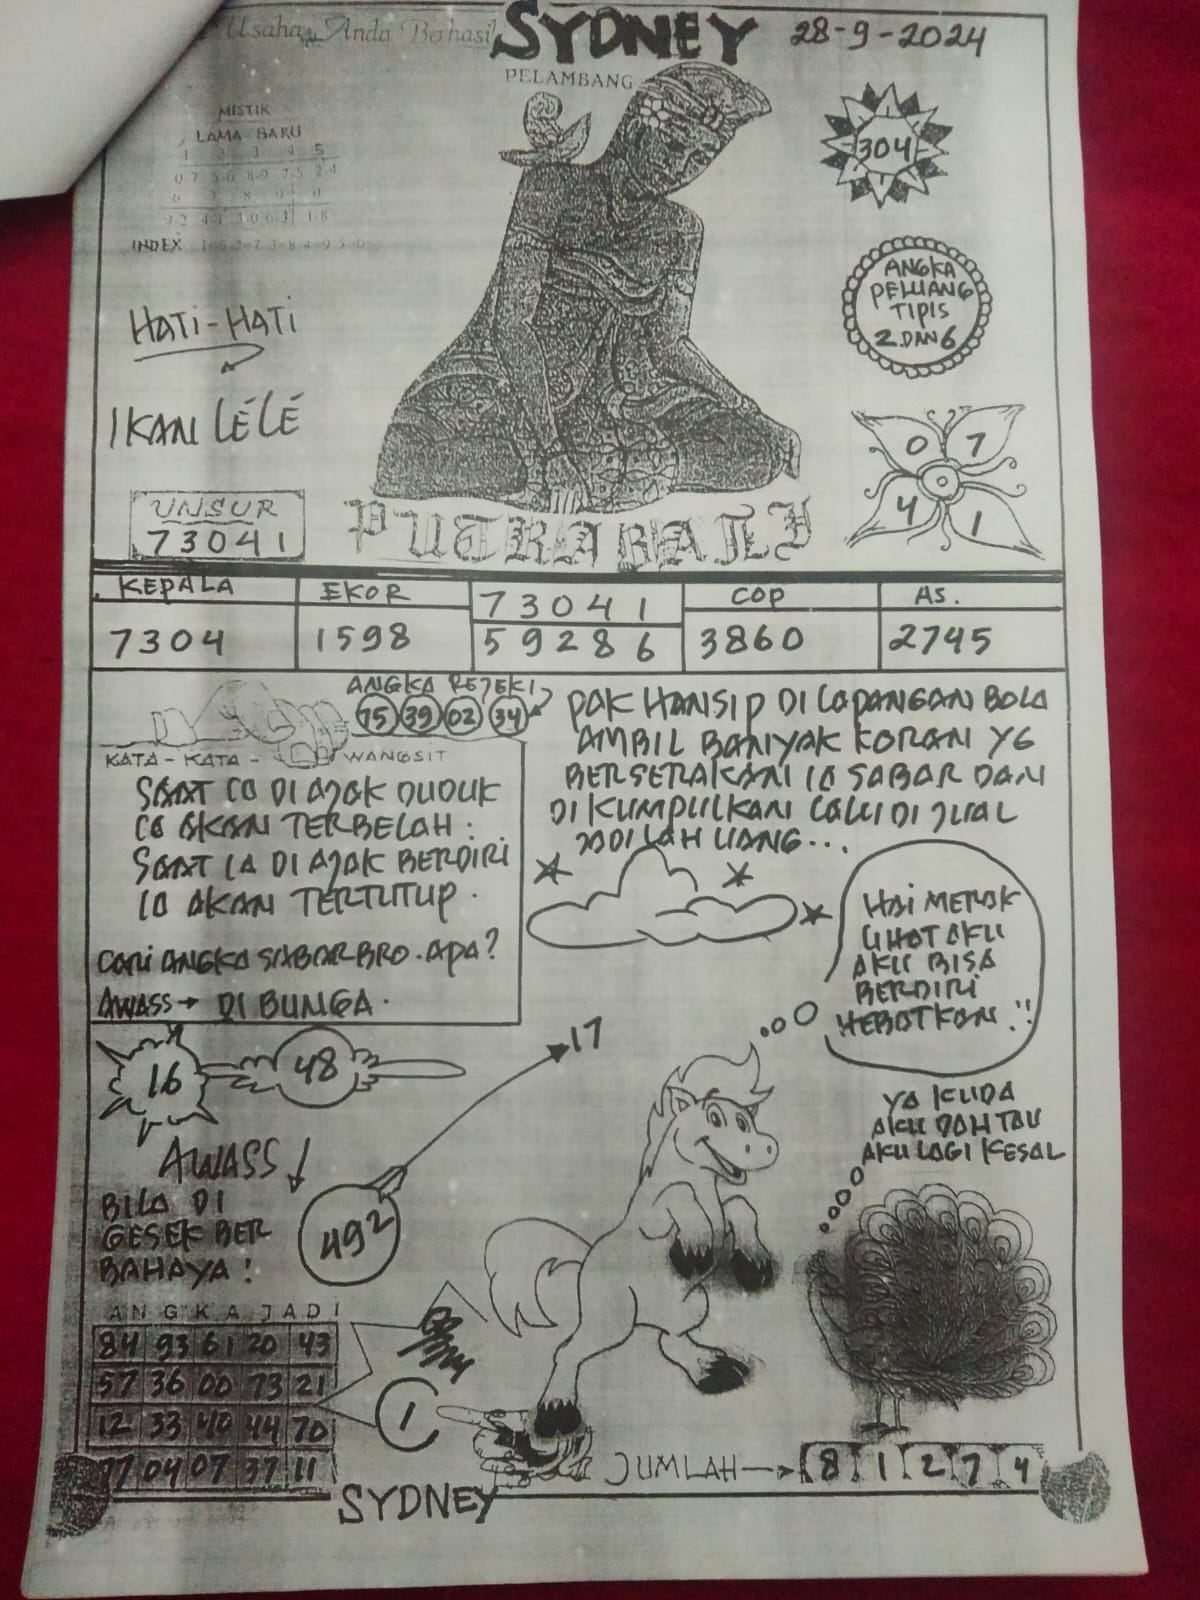 Usaha Anda Berhasil
SYDNEY
28-9-2024
PELAMBANG
MISTIK
LAMA BARU
INDEX
304
ANGKA
PELUANG
TIPIS
2 DAN 6
HATI-HATI
IKAN LÉLÉ
0 7
4 1
UNSUR
73041
PUTRA BALI
KEPALA
EKOR
73041
COP
AS.
7304
1598
59286
3860
2745
ANGKA REJEKI
75 39 02 34
KATA - KATA - WANGSIT
SAAT IA DI AJAK DUDUK
IA AKAN TERBELAH.
SAAT IA DI AJAK BERDIRI
IA AKAN TERTUTUP.
CARI ANGKA SABAR BRO. APA?
AWASS → DI BUNGA.
PAK HANSIP DI LAPANGAN BOLA
AMBIL BANYAK KORAN YG
BERSERAKAN IA SABAR DAN
DI KUMPULKAN LALU DI JUAL
JADILAH UANG...
HAI MERAK
LIHAT AKU
AKU BISA
BERDIRI
HEBATKAN..!!
YA KUDA
AKU DAH TAU
AKU LAGI KESAL
16
48
17
AWASS ↓
BILA DI
GESEK BER
BAHAYA!
492
ANGKA JADI
84 93 61 20 43
57 36 00 73 21
12 33 40 44 70
77 04 07 37 11
1
JUMLAH → 8 1 2 7 4
SYDNEY